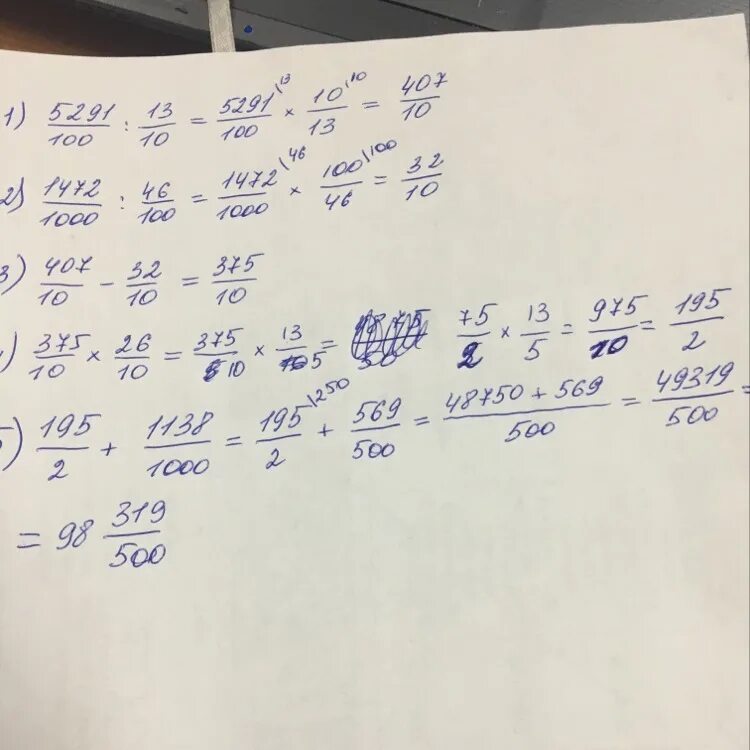 1) 5291/100 : 13/10 = 5291/100 \13 × 10/13 \10 = 407/10
2) 1472/1000 : 46/100 = 1472/1000 \46 × 100/46 \100 = 32/10
3) 407/10 - 32/10 = 375/10
) 375/10 × 26/10 = 375/10 × 13/5 = 75/2 × 13/5 = 975/10 = 195/2
5) 195/2 + 1138/1000 = 195/2 \250 + 569/500 = 48750 + 569/500 = 49319/500 =
= 98 319/500